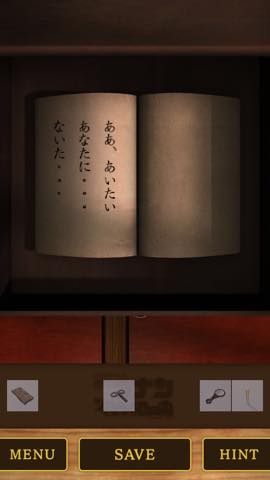 ああ、あいたい
あなたに・・・・
ないた・・・
MENU
SAVE
HINT